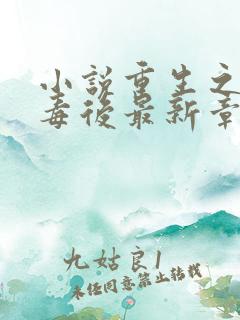 小说重生之
毒後最新章
九姑良1
未经同意禁止转载